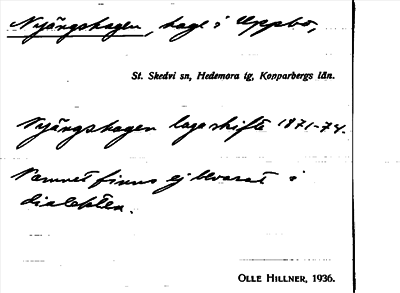 Nyängshagen, hage i Uppbo,
St. Skedvi sn, Hedemora tg, Kopparbergs län.
Nyängshagen lagaskifte 1871-74.
Namnet finns ej bevarat i
dialekten.
OLLE HILLNER, 1936.